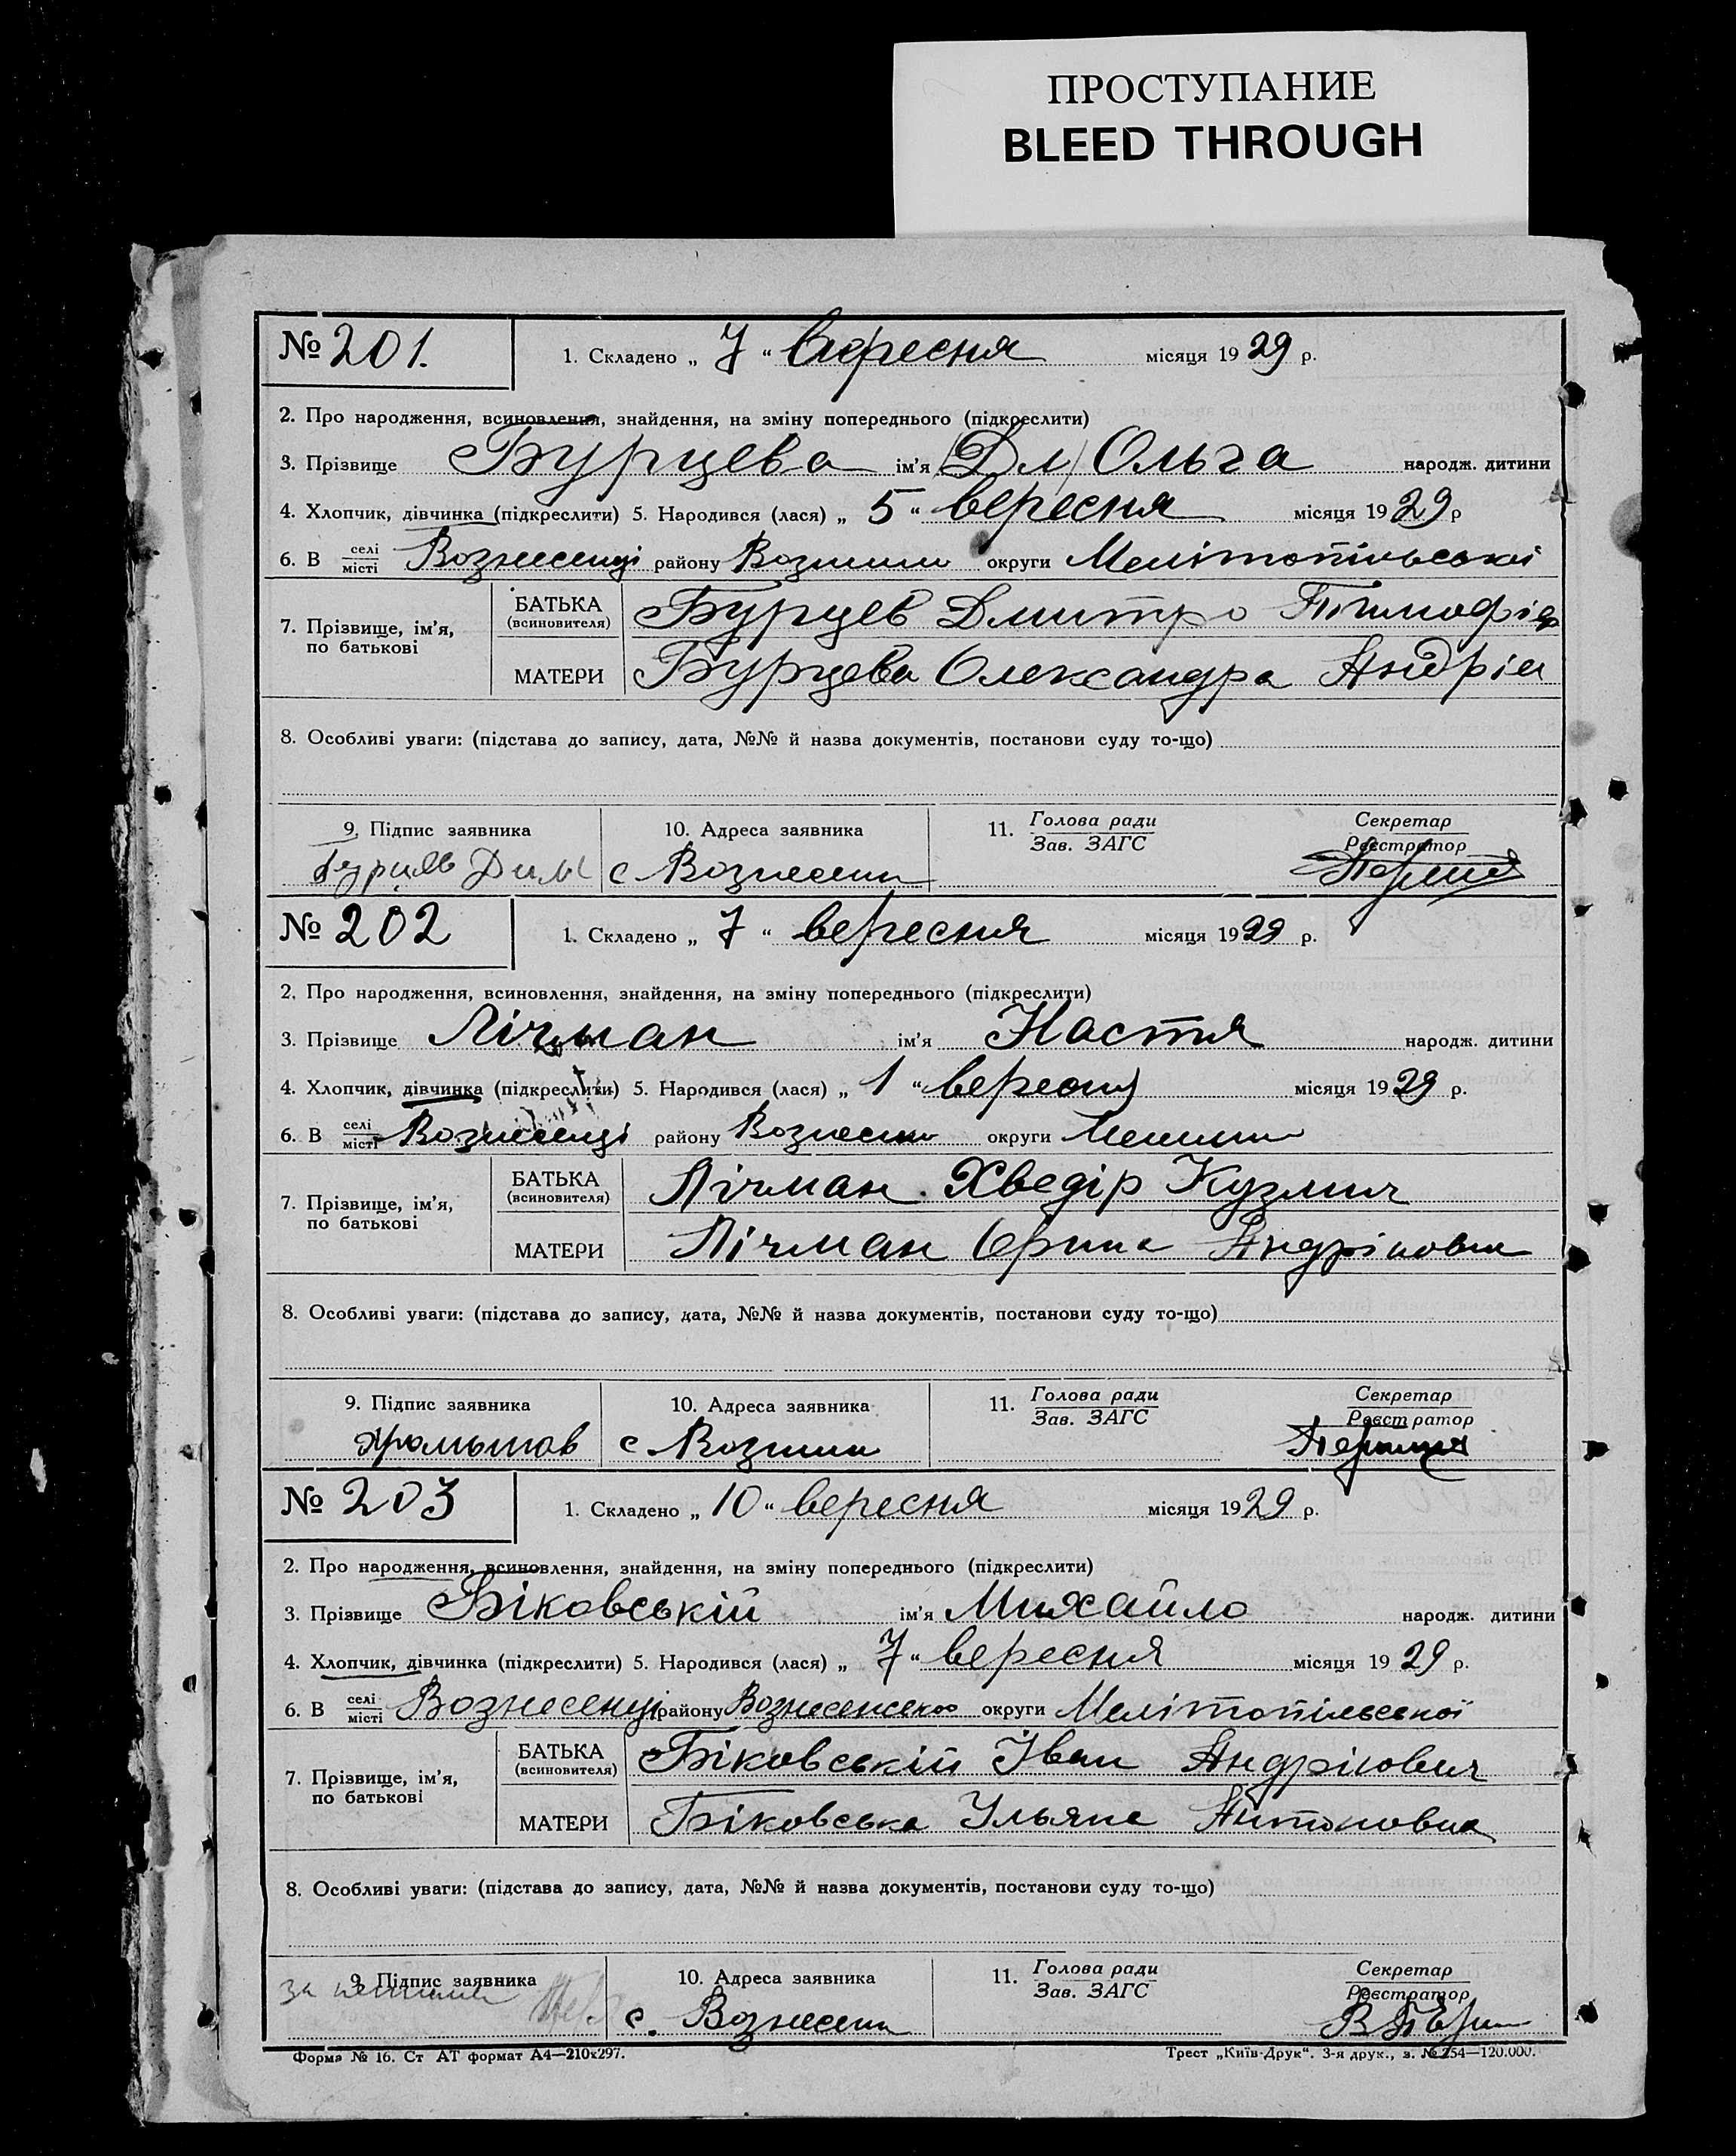 ПРОСТУПАНИЕ
BLEED THROUGH
№ 201. 1. Складено „ 7 “ вересня місяця 1929 р.
2. Про народження, всиновлення, знайдення, на зміну попереднього (підкреслити)
3. Прізвище Бурцева ім'я Ольга народж. дитини
4. Хлопчик, дівчинка (підкреслити) 5. Народився (лася) „ 5 “ вересня місяця 1929 р
6. В селі місті Вознесенці району округи Мелітопільської
7. Прізвище, ім'я, по батькові
БАТЬКА (всиновителя) Бурцев Дмитро
МАТЕРИ Бурцева Олександра
8. Особливі уваги: (підстава до запису, дата, №№ й назва документів, постанови суду то-що)
9. Підпис заявника 10. Адреса заявника 11. Голова ради Зав. ЗАГС Секретар Реєстратор
с
№ 202 1. Складено „ 7 “ вересня місяця 1929 р.
2. Про народження, всиновлення, знайдення, на зміну попереднього (підкреслити)
3. Прізвище Лічман ім'я Настя народж. дитини
4. Хлопчик, дівчинка (підкреслити) 5. Народився (лася) „ 1 “ вересня місяця 1929 р.
6. В селі місті Вознесенці району округи
7. Прізвище, ім'я, по батькові
БАТЬКА (всиновителя) Лічман Хведір Кузмич
МАТЕРИ Лічман Орина Андріновна
8. Особливі уваги: (підстава до запису, дата, №№ й назва документів, постанови суду то-що)
9. Підпис заявника 10. Адреса заявника 11. Голова ради Зав. ЗАГС Секретар Реєстратор
с
№ 203 1. Складено „ 10 “ вересня місяця 1929 р.
2. Про народження, всиновлення, знайдення, на зміну попереднього (підкреслити)
3. Прізвище Біковській ім'я Михайло народж. дитини
4. Хлопчик, дівчинка (підкреслити) 5. Народився (лася) „ 7 “ вересня місяця 1929 р.
6. В селі місті Вознесенці району округи Мелітопільської
7. Прізвище, ім'я, по батькові
БАТЬКА (всиновителя) Біковській Іван Андрійович
МАТЕРИ Біковська Ульяна Антоновна
8. Особливі уваги: (підстава до запису, дата, №№ й назва документів, постанови суду то-що)
9. Підпис заявника 10. Адреса заявника 11. Голова ради Зав. ЗАГС Секретар Реєстратор
с.
Форма № 16. Ст АТ формат А4—210х297. Трест „Київ-Друк“. 3-я друк., з. № 254—120.000.